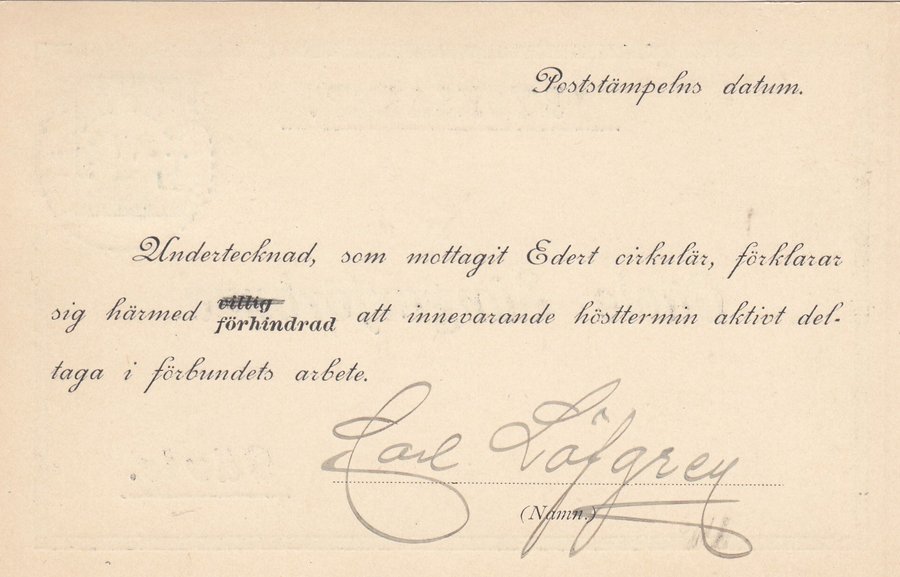 Poststämpelns datum.
Undertecknad, som mottagit Edert cirkulär, förklarar
sig härmed villig förhindrad att innevarande hösttermin aktivt del-
taga i förbundets arbete.
Carl Löfgren
(Namn.)